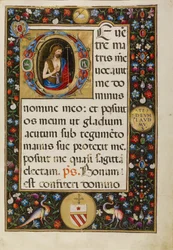 E ue
tre ma
tris me
uocauit
me do
minus
nomine meo: et posuit
os meum ut gladium
acutum sub tegumēto
manus sue protexit me.
posuit me quasi sagittā
electam. ps. Bonum
est confiteri domino